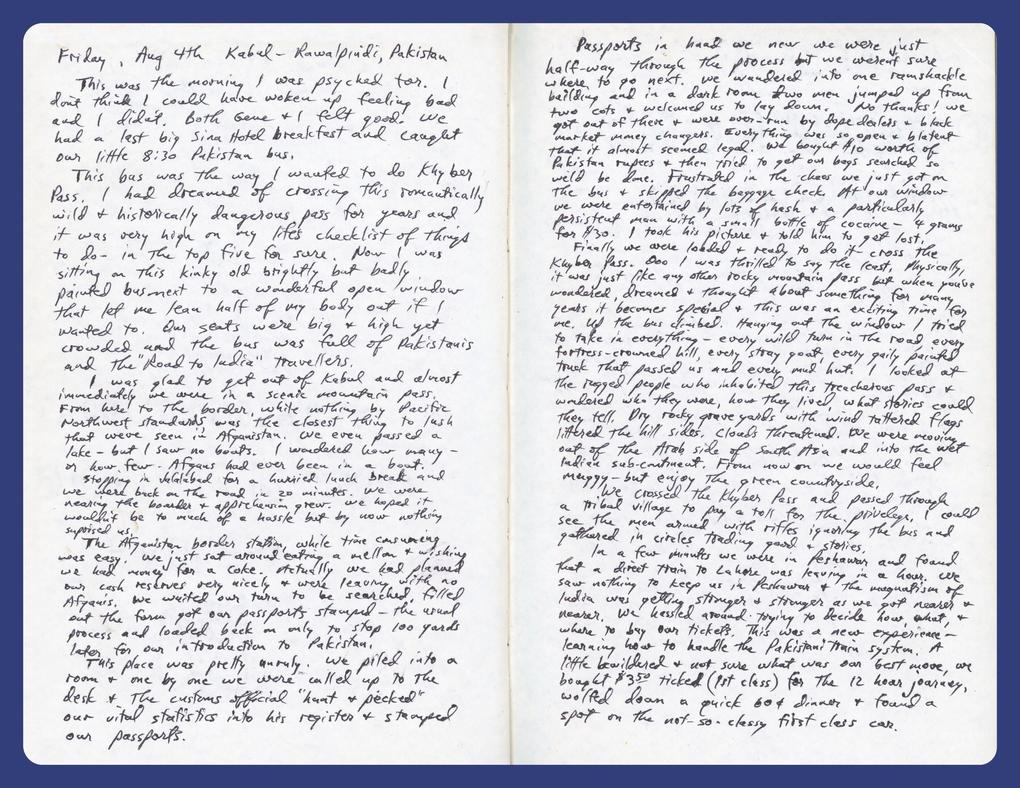 Friday, Aug 4th Kabul – Rawalpindi, Pakistan
This was the morning I was psyched for. I
don't think I could have woken up feeling bad
and I didn't. Both Gene & I felt good. We
had a last big Sina Hotel breakfast and caught
our little 8:30 Pakistan bus.
This bus was the way I wanted to do Khyber
Pass. I had dreamed of crossing this romantically
wild & historically dangerous pass for years and
it was very high on my lifes checklist of things
to do – in the top five for sure. Now I was
sitting on this kinky old brightly but badly
painted bus next to a wonderful open window
that let me lean half of my body out if I
wanted to. Our seats were big & high yet
crowded and the bus was full of Pakistanis
and the "Road to India" travellers.
I was glad to get out of Kabul and almost
immediately we were in a scenic mountain pass.
From here to the border, while nothing by Pacific
Northwest standards, was the closest thing to lush
that weve seen in Afganistan. We even passed a
lake – but I saw no boats. I wondered how many –
or how few – Afgans had ever been in a boat.
Stopping in Jalalabad for a hurried lunch break and
we were back on the road in 20 minutes. We were
nearing the boarder & apprehension grew. We hoped it
wouldn't be to much of a hassle but by now nothing
suprised us.
The Afganistan border station, while time consuming
was easy. We just sat around eating a mellon & wishing
we had money for a Coke. Actually we had planned
our cash reserves very nicely & were leaving with no
Afganis. We waited our turn to be searched, filled
out the form got our passports stamped – the usual
process and loaded back on only to stop 100 yards
later for our introduction to Pakistan.
This place was pretty unruly. We piled into a
room & one by one we were called up to the
desk & the customs official "hunt & pecked"
our vital statistics into his register & stamped
our passports.
Passports in hand we new we were just
half-way through the process but we weren't sure
where to go next. We wandered into one ramshackle
building and in a dark room two men jumped up from
two cots & welcomed us to lay down. No thanks! We
got out of there & were over-run by dope dealers & black
market money changers. Everything was so open & blatent
that it almost seemed legal. We bought $10 worth of
Pakistan rupees & then tried to get our bags searched so
we'd be done. Frustrated in the chaos we just got on
the bus & skipped the baggage check. At our window
we were entertained by lots of hash & a particularly
persistent man with a small bottle of cocaine – 4 grams
for $30. I took his picture & told him to get lost.
Finally we were loaded & ready to do it – cross the
Khyber Pass. Ooo I was thrilled to say the least. Physically,
it was just like any other rocky mountain pass but when you've
wondered, dreamed & thought about something for many
years it becomes special & this was an exciting time for
me. Up the bus climbed. Hanging out the window I tried
to take in everything – every wild turn in the road every
fortress-crowned hill, every stray goat, every gaily painted
truck that passed us and every mud hut. I looked at
the rugged people who inhabited this treacherous pass &
wondered who they were, how they lived what stories could
they tell. Dry rocky graveyards with wind tattered flags
littered the hill sides. Clouds threatened. We were moving
out of the Arab side of South Asia and into the wet
Indian sub-continent. From now on we would feel
muggy – but enjoy the green countryside.
We crossed the Khyber Pass and passed through
a tribal village to pay a toll for the privelege. I could
see the men armed with rifles ignoring the bus and
gathered in circles trading good & stories.
In a few minutes we were in Peshawar and found
that a direct train to Lahore was leaving in a hour. We
saw nothing to keep us in Peshawar & the magnatism of
India was getting stronger & stronger as we got nearer &
nearer. We hassled around trying to decide how, what, &
where to buy our tickets. This was a new experience –
learning how to handle the Pakistani train system. A
little bewildered & not sure what was our best move, we
bought $3.50 ticked (1st class) for the 12 hour journey,
wolfed down a quick 60¢ dinner & found a
spot on the not-so-classy first class car.